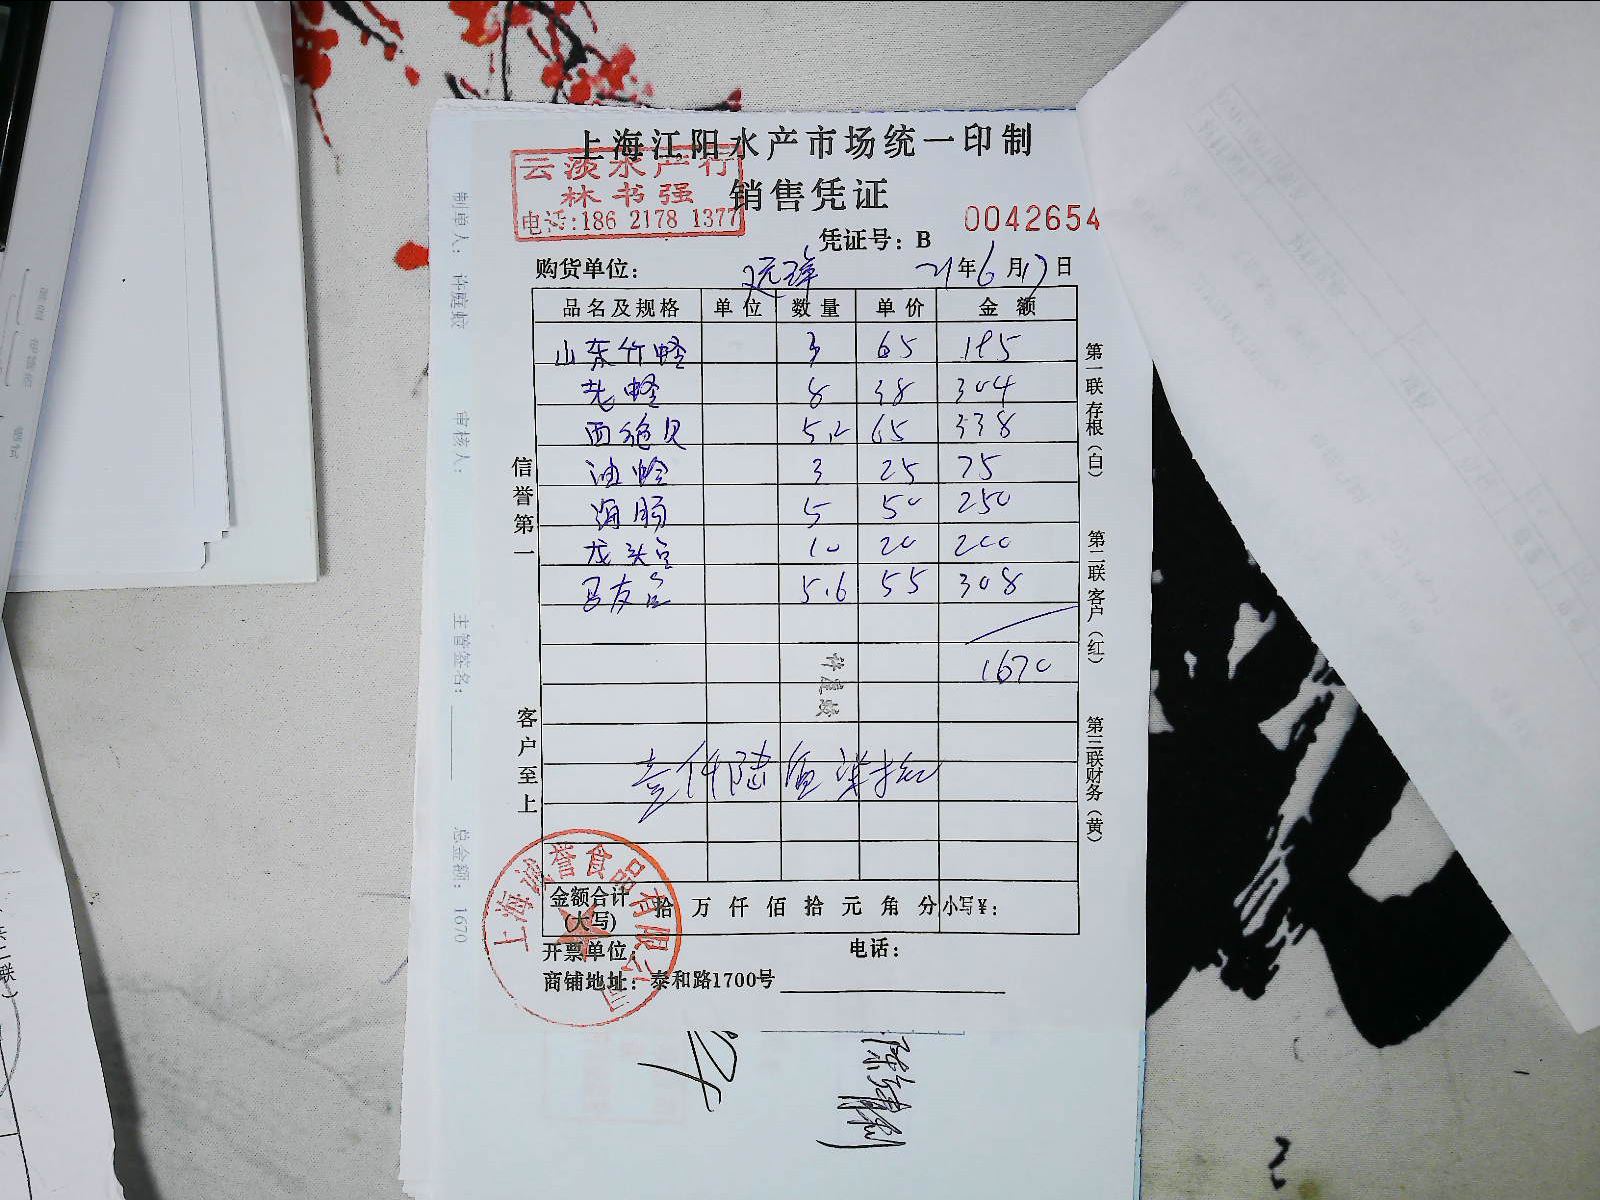 上海江阳水产市场统一印制
云淡水产行
林书强
电话:186 2178 1377
销售凭证
0042654
凭证号：B
购货单位： 21年6月17日
品名及规格 单位 数量 单价 金额
山东竹蛏 3 65 195
老蛏 8 38 304
西施贝 5.2 65 338
油蛤 3 25 75
海肠 5 50 250
龙头 10 20 200
5.6 55 308
1670
许庭蛟
壹仟陆佰柒拾
金额合计(大写) 拾 万 仟 佰 拾 元 角 分 小写￥：
开票单位： 电话：
商铺地址：泰和路1700号
上海诚誉食品有限公司
信誉第一
客户至上
第一联存根（白）
第二联客户（红）
第三联财务（黄）
制单人：许庭蛟
审核人：
主管签名：
总金额：1670